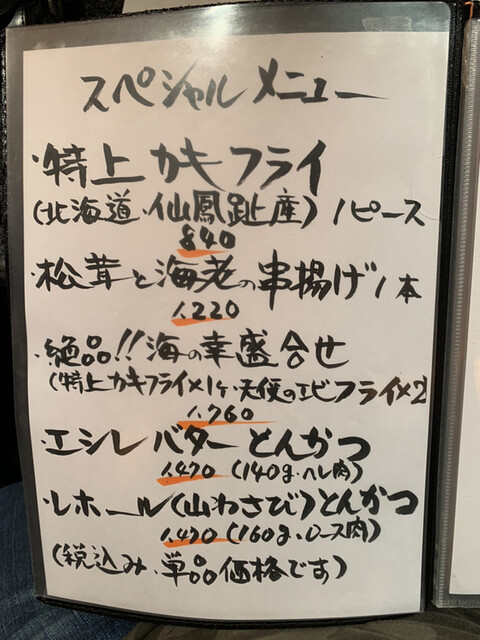 スペシャルメニュー
・特上カキフライ
(北海道・仙鳳趾産)1ピース
840
・松茸と海老の串揚げ1本
1,220
・絶品!!海の幸盛合せ
(特上カキフライ×1ケ・天使のエビフライ×2
1,760
・エシレバターとんかつ
1,470(140g・ヘレ肉)
・レホール(山わさび)とんかつ
1,490(160g・ロース肉)
(税込み・単品価格です)